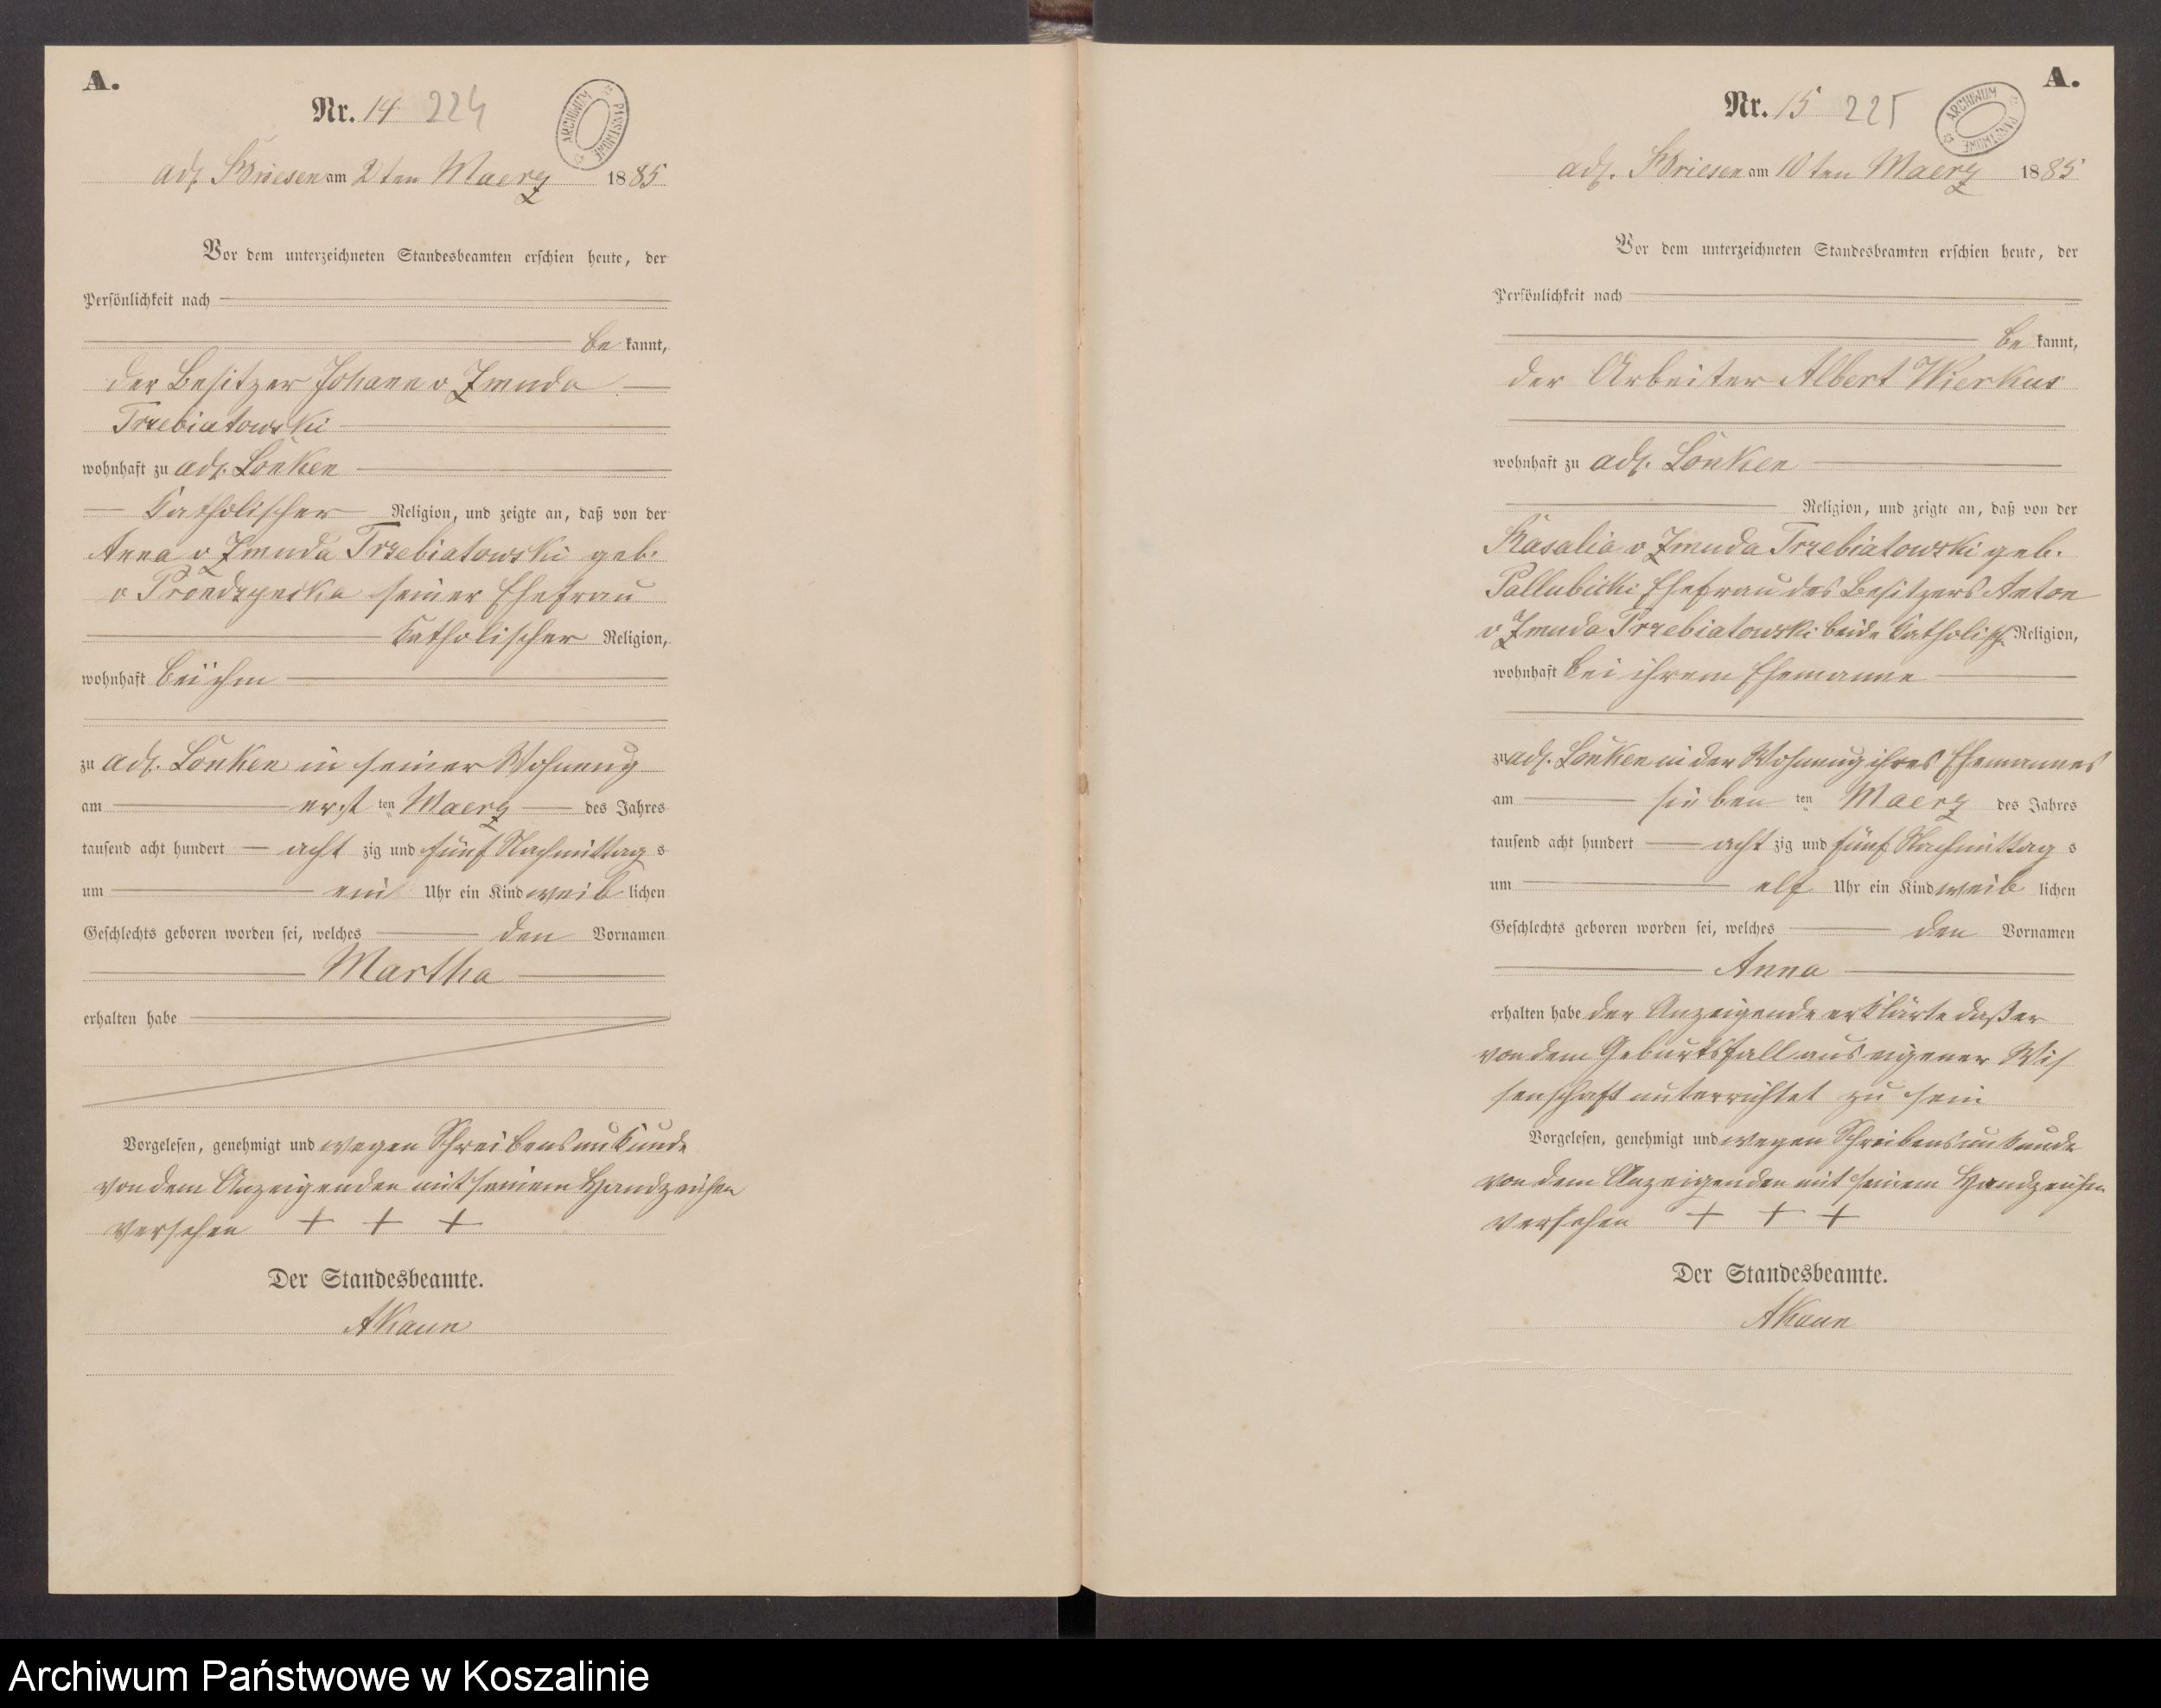 A.
Nr. 14 224
ARCHIWUM PAŃSTWOWE
adl. Briesen am 2ten Maerz 1885
Vor dem unterzeichneten Standesbeamten erschien heute, der
Persönlichkeit nach
be kannt,
der Besitzer Johann v Zmuda
Trzebiatowski
wohnhaft zu adl. Lonken
Katholischer Religion, und zeigte an, daß von der
Anna v Zmuda Trzebiatowski geb.
v seiner Ehefrau
Katholischer Religion,
wohnhaft bei ihm
zu adl. Lonken in seiner Wohnung
am erst ten Maerz des Jahres
tausend acht hundert acht zig und fünf Nachmittag s
um ein Uhr ein Kind weib lichen
Geschlechts geboren worden sei, welches den Vornamen
Martha
erhalten habe
Vorgelesen, genehmigt und wegen Schreibensunkunde
von dem Anzeigenden mit seinem Handzeichen
versehen + + +
Der Standesbeamte.
A.
Nr. 15 225
ARCHIWUM PAŃSTWOWE
adl. Briesen am 10ten Maerz 1885
Vor dem unterzeichneten Standesbeamten erschien heute, der
Persönlichkeit nach
be kannt,
der Arbeiter Albert Wierkus
wohnhaft zu adl. Lonken
Religion, und zeigte an, daß von der
Rasalia v Zmuda Trzebiatowski geb.
Pallubicki Ehefrau des Besitzers Anton
v Zmuda Trzebiatowski beide Katholisch. Religion,
wohnhaft bei ihrem Ehemanne
zu adl. Lonken in der Wohnung ihres Ehemannes
am sieben ten Maerz des Jahres
tausend acht hundert acht zig und fünf Nachmittag s
um elf Uhr ein Kind weib lichen
Geschlechts geboren worden sei, welches den Vornamen
Anna
erhalten habe der Anzeigende erklärte daß er
von dem Geburtsfall aus eigener Wis
senschaft unterrichtet zu sein
Vorgelesen, genehmigt und wegen Schreibensunkunde
von dem Anzeigenden mit seinem Handzeichen
versehen + + +
Der Standesbeamte.
Archiwum Państwowe w Koszalinie